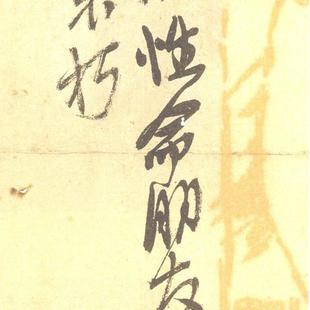 性命朋友
不朽